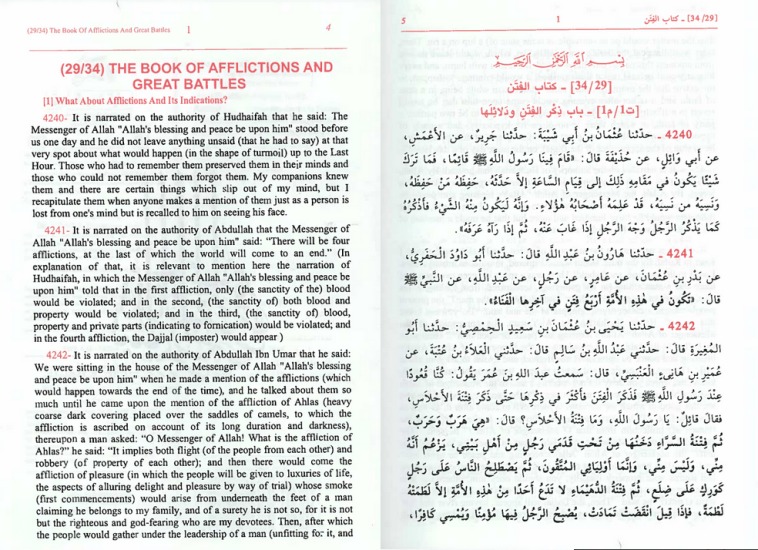 (29/34) The Book Of Afflictions And Great Battles 1 4
(29/34) THE BOOK OF AFFLICTIONS AND
GREAT BATTLES
[1] What About Afflictions And Its Indications?
4240- It is narrated on the authority of Hudhaifah that he said: The
Messenger of Allah "Allah's blessing and peace be upon him" stood before
us one day and he did not leave anything unsaid (that he had to say) at that
very spot about what would happen (in the shape of turmoil) up to the Last
Hour. Those who had to remember them preserved them in their minds and
those who could not remember them forgot them. My companions knew
them and there are certain things which slip out of my mind, but I
recapitulate them when anyone makes a mention of them just as a person is
lost from one's mind but is recalled to him on seeing his face.
4241- It is narrated on the authority of Abdullah that the Messenger of
Allah "Allah's blessing and peace be upon him" said: "There will be four
afflictions, at the last of which the world will come to an end." (In
explanation of that, it is relevant to mention here the narration of
Hudhaifah, in which the Messenger of Allah "Allah's blessing and peace be
upon him" told that in the first affliction, only (the sanctity of the) blood
would be violated; and in the second, (the sanctity of) both blood and
property would be violated; and in the third, (the sanctity of) blood,
property and private parts (indicating to fornication) would be violated; and
in the fourth affliction, the Dajjal (imposter) would appear )
4242- It is narrated on the authority of Abdullah Ibn Umar that he said:
We were sitting in the house of the Messenger of Allah "Allah's blessing
and peace be upon him" when he made a mention of the afflictions (which
would happen towards the end of time), and he talked about them so
much until he came upon the mention of the affliction of Ahlas (heavy
coarse dark covering placed over the saddles of camels, to which the
affliction is ascribed on account of its long duration and darkness),
thereupon a man asked: "O Messenger of Allah! What is the affliction of
Ahlas?" he said: "It implies both flight (of the people from each other) and
robbery (of property of each other); and then there would come the
affliction of pleasure (in which the people will be given to luxuries of life,
the aspects of alluring delight and pleasure by way of trial) whose smoke
(first commencements) would arise from underneath the feet of a man
claiming he belongs to my family, and of a surety he is not so, for it is not
but the righteous and god-fearing who are my devotees. Then, after which
the people would gather under the leadership of a man (unfitting for it, and
[34/29] ـ كتاب الفِتَن 1 5
بِسْمِ اللَّهِ الرَّحْمَنِ الرَّحِيمِ
[34/29] ـ كتاب الفِتَن
[ت1/م1] ـ باب ذِكْر الفِتَنِ ودَلائِلَها
4240 ـ حدّثنا عُثْمَانُ بنُ أَبي شَيْبَةَ: حدّثنا جَرِيرٌ، عن الأعْمَشِ،
عن أبي وَائِلٍ، عن حُذَيْفَةَ قالَ: «قَامَ فِينَا رَسُولُ اللَّهِ ﷺ قَائِمًا، فَمَا تَرَكَ
شَيْئًا يَكُونُ في مَقَامِهِ ذَلِكَ إلى قِيَامِ السَّاعَةِ إلاَّ حَدَّثَهُ، حَفِظَهُ مَنْ حَفِظَهُ،
وَنَسِيَهُ مَنْ نَسِيَهُ، قَدْ عَلِمَهُ أَصْحَابُهُ هَؤُلاَءِ. وَإنَّهُ لَيَكُونُ مِنْهُ الشَّيْءُ فَأَذْكُرُهُ
كَمَا يَذْكُرُ الرَّجُلُ وَجْهَ الرَّجُلِ إذَا غَابَ عَنْهُ، ثُمَّ إذَا رَآهُ عَرَفَهُ».
4241 ـ حدّثنا هَارُونُ بنُ عَبْدِ اللَّهِ قالَ: حدّثنا أَبُو دَاوُدَ الْحَفَرِيُّ،
عن بَدْرِ بنِ عُثْمانَ، عن عَامِرٍ، عن رَجُلٍ، عن عَبْدِ اللَّهِ، عن النَّبيِّ ﷺ
قالَ: «تَكُونُ في هَذِهِ الأُمَّةِ أَرْبَعُ فِتَنٍ في آخِرِها الْفَنَاءُ».
4242 ـ حدّثنا يَحْيَى بنُ عُثْمَانَ بنِ سَعِيدٍ الْحِمْصِيُّ: حدّثنا أَبُو
المُغِيرَةِ قالَ: حدّثني عَبْدُ اللَّهِ بنُ سَالِمٍ قالَ: حدّثني الْعَلاَءُ بنُ عُتْبَةَ، عن
عُمَيْرِ بنِ هَانِىءٍ الْعَنْسِيِّ، قال: سَمعتُ عبدَ اللهِ بنَ عُمَرَ يَقُولُ: كُنَّا قُعُودًا
عِنْدَ رَسُولِ اللَّهِ ﷺ فَذَكَرَ الْفِتَنَ فأَكْثَرَ في ذِكْرِهَا حتَّى ذَكَرَ فِتْنَةَ الأَحْلاَسِ،
فقالَ قائِلٌ: يَا رَسُولَ اللَّهِ، وَمَا فِتْنَةُ الأَحْلاَسِ؟ قالَ: «هِيَ هَرَبٌ وَحَرَبٌ،
ثُمَّ فِتْنَةُ السَّرَّاءِ دَخَنُهَا مِنْ تَحْتِ قَدَمَيْ رَجُلٍ مِنْ أَهْلِ بَيْتِي، يَزْعُمُ أَنَّهُ
مِنِّي، وَلَيْسَ مِنِّي، وَإنَّمَا أَوْلِيَائِي المُتَّقُونَ، ثُمَّ يَصْطَلِحُ النَّاسُ عَلَى رَجُلٍ
كَوَرِكٍ عَلَى ضِلَعٍ، ثُمَّ فِتْنَةُ الدُّهَيْمَاءِ لا تَدَعُ أَحَدًا مِنْ هَذِهِ الأُمَّةِ إلاَّ لَطَمَتْهُ
لَطْمَةً، فَإذَا قِيلَ انْقَضَتْ تَمَادَتْ، يُصْبِحُ الرَّجُلُ فِيهَا مُؤْمِنًا وَيُمْسِي كَافِرًا،